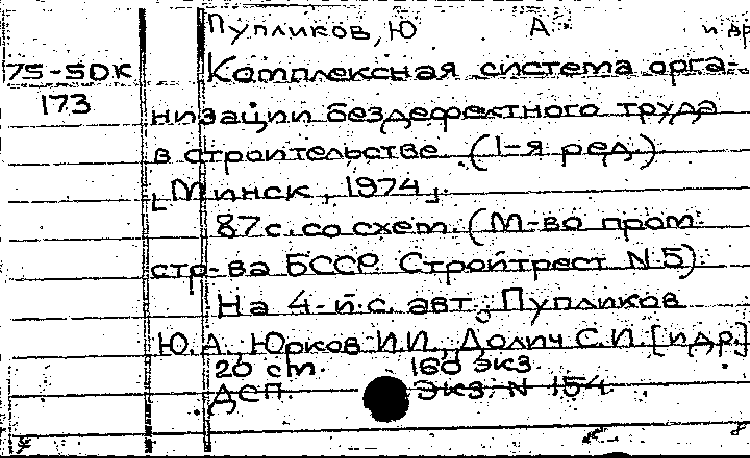 Пупликов, Ю А и др
75-5DK Комплексная система орга-
173 низации бездефектного труда
в строительстве. (1-я ред.)
[Минск, 1974].
87 с. со схем. (М-во пром.
стр-ва БССР. Стройтрест N 5).
На 4-й с. авт.: Пупликов
Ю.А., Юрков И.И., Долич С.И. [и др.]
20 см. 160 экз.
ДСП. Экз. N 154.